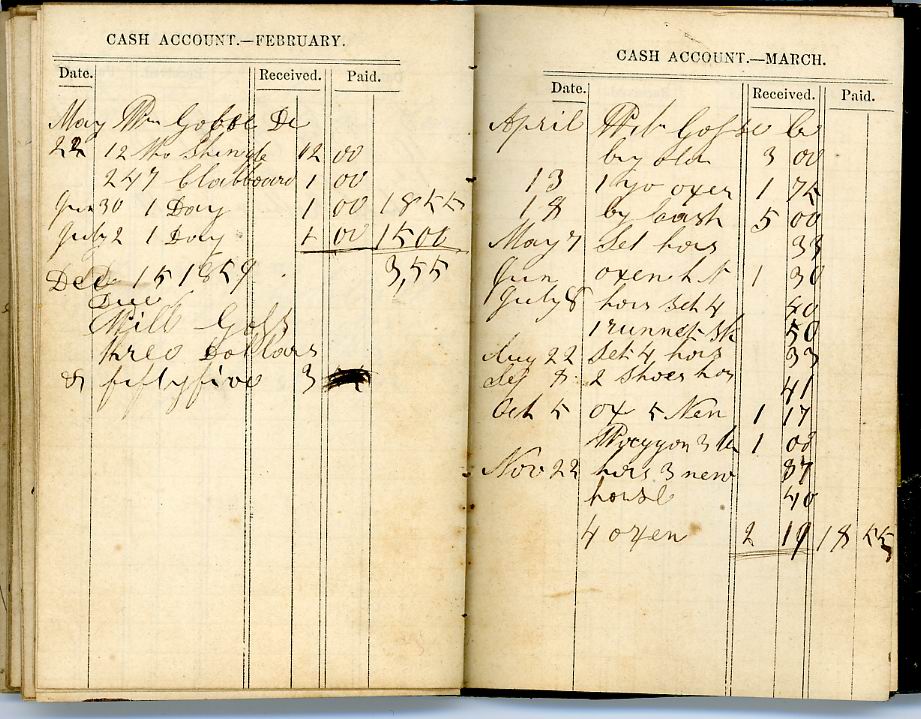 CASH ACCOUNT.—FEBRUARY.
Date. Received. Paid.
May Wm Goss Dr
22 12 Tho Shingle 12 00
247 Clabboard 1 00
Jun 30 1 Day 1 00 18 55
July 2 1 Day 1 00 15 00
Dec 15 1859 3,55
Due
Will Goss
threo Dollars
& fiftyfivo 3
CASH ACCOUNT.—MARCH.
Date. Received. Paid.
April Goss Cr
by old 3 00
13 1 yo oxen 1 75
18 by Cash 5 00
May 7 Set hors 33
Jun oxen 1 30
July 8 hors set 4 40
1 runner 50
Aug 22 Set 4 hors 33
Sep 8 2 Shoes hos 41
Oct 5 ox 5 New 1 17
Waggon 3 1 08
Nov 22 hors 3 new 87
horse 40
4 oxen 2 19 18 55